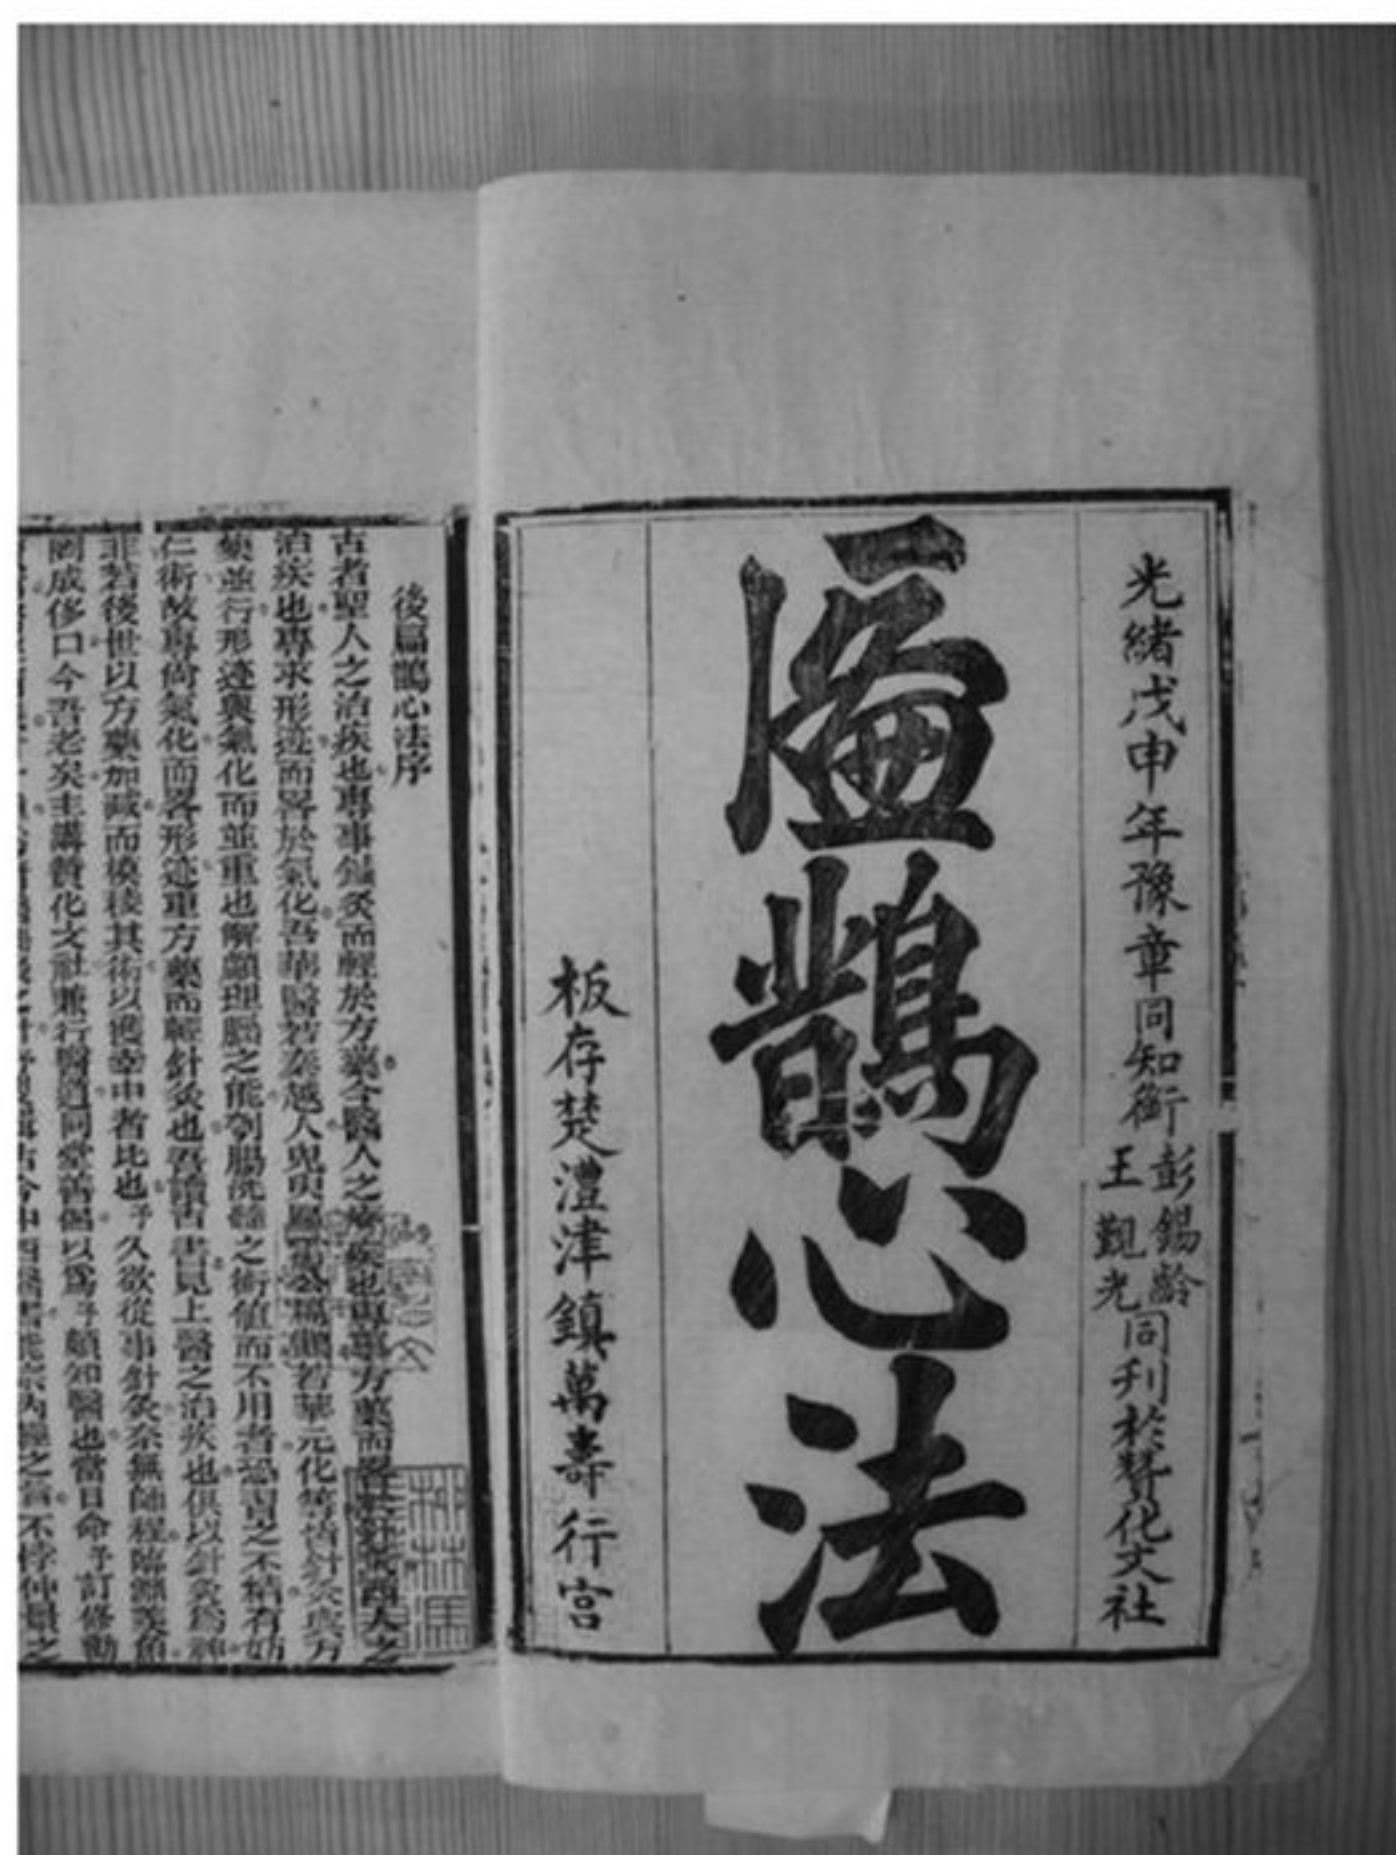 光緒戊申年豫章同知銜彭錫齡王觀光同刊於贊化文社
鶣鵲心法
板存楚澧津鎮萬壽行宮
後扁鵲心法序
古者聖人之治疾也專事鍼灸而輕於方藥今醫人之療疾也專事方藥而畧針灸西人之
治疾也專求形迹而畧於氣化吾華醫若秦越人鬼臾區雷公扁鵲若華元化等皆針灸與方
藥並行形迹與氣化而並重也解顱理腦之能刳腸洗髓之術值而不用者恐習之不精有妨
仁術故專尚氣化而畧形迹重方藥而輕針灸也吾讀古書見上醫之治疾也俱以針灸為神
非若後世以方藥加減而模稜其術以僥幸中者比也予久欲從事針灸奈無師程臨淵羨魚
罔成侈口今吾老矣主講贊化文社兼行醫道同堂善侶以爲予頗知醫也當日命予訂修勸